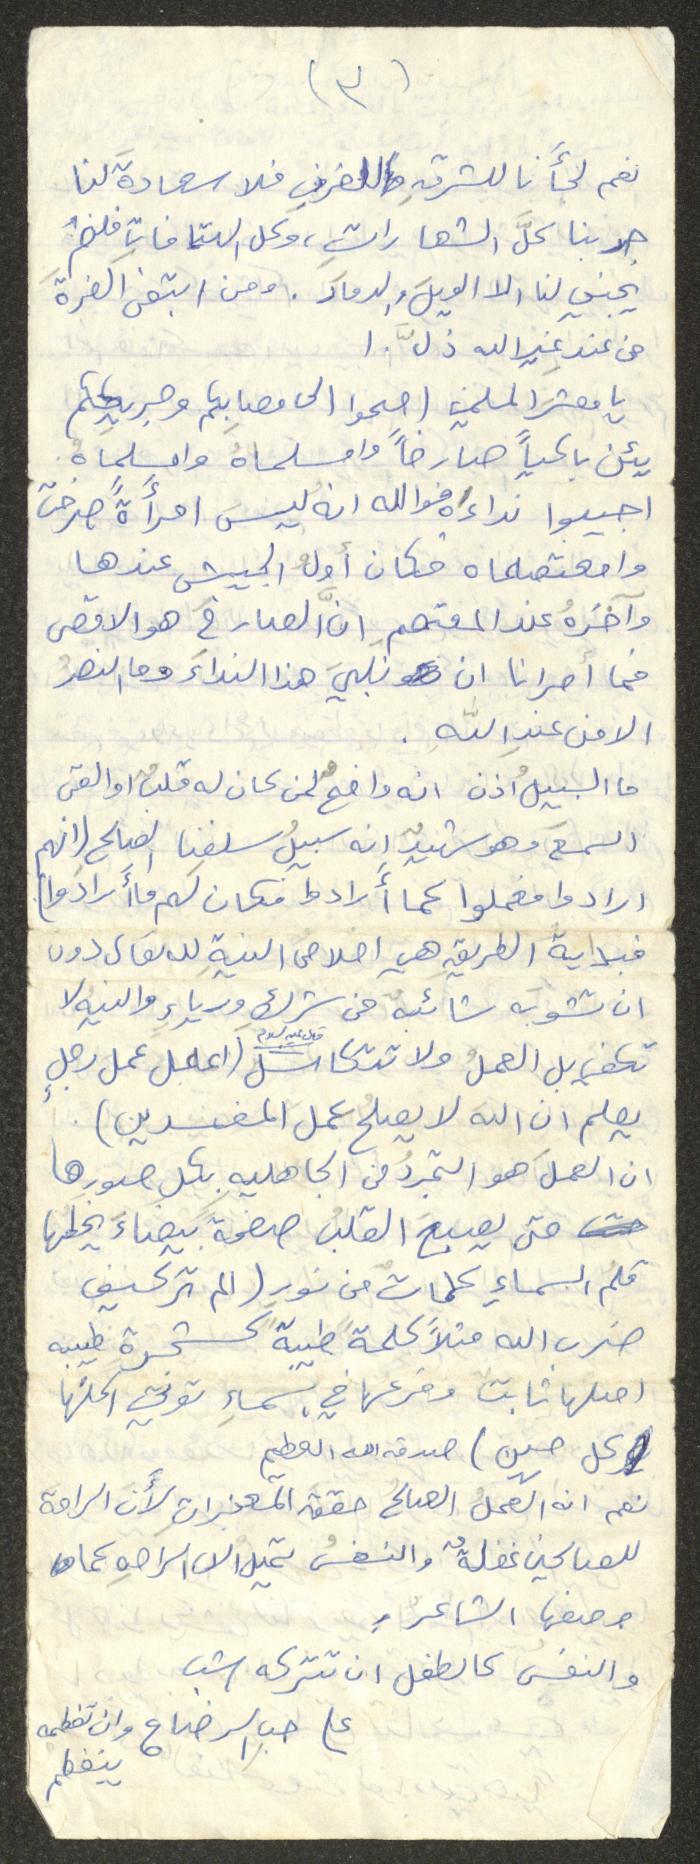 (٣)
نعم لجأنا للشرق وللغرب فلا سعادة لنا
جربنا كلَّ الشعارات، وكل الهتافات فلم
يُجنى لنا الا الويلَ والدمارَ. ومن ابتغى العزةَ
من عند غيرِ الله ذلَّ. ا
يا معشر المسلمين اصحوا الى مصابكم وجريحكم
يئن باكياً صارخاً وامسلماهُ وامسلماهُ.
اجيبوا نداءه فوالله انهُ ليسَ امرأةً صرخت
وامعتصماه فكان أولُ الجيش عندها
وآخرُهُ عند المعتصم انَّ الصارخَ هو الاقصى
فما أحرانا ان نلبيَ هذا النداءَ وما النصرُ
الا من عندِ اللهِ .
ما السبيلُ اذن انه واضحٌ لمن كان له قلبٌ او القى
السمعَ وهو شهيدٌ انه سبيلُ سلفنا الصالح (انهم
ارادوا فعملوا كما أرادوا فكان لهم ما أرادوا)
فبداية الطريق هي اخلاص النيةِ لله تعالى دون
ان تشوبَه شائبهٌ من شركٍ ورياءٍ والنيه لا
تكفي بل العملُ ولا تتكاسلْ قال عليه السلام (اعمل عمل رجلٍ
يعلم ان الله لا يصلحُ عمل المفسدين) .
ان العملَ هو التجردُ من الجاهليه بكلِ صورها
حتى يصبح القلبُ صفحةً بيضاءَ يخطُها
قلمُ السماءِ بكلماتٍ من نورٍ (الم تر كيف
ضرب الله مثلاً كلمةً طيبةً كشجرة طيبه
اصلها ثابت وفرعها في السماءِ تؤتي أكلَها
كل حين) صدق الله العظيم
نعم انه العملُ الصالحُ حقق المعجزات لأن الراحة
للصالحين غفلةٌ والنفسُ تميلُ الى الراحهِ كما
وصفها الشاعرُ
والنفس كالطفل ان تتركه شب
على حب الرضاع وان تفطمه
ينفطم